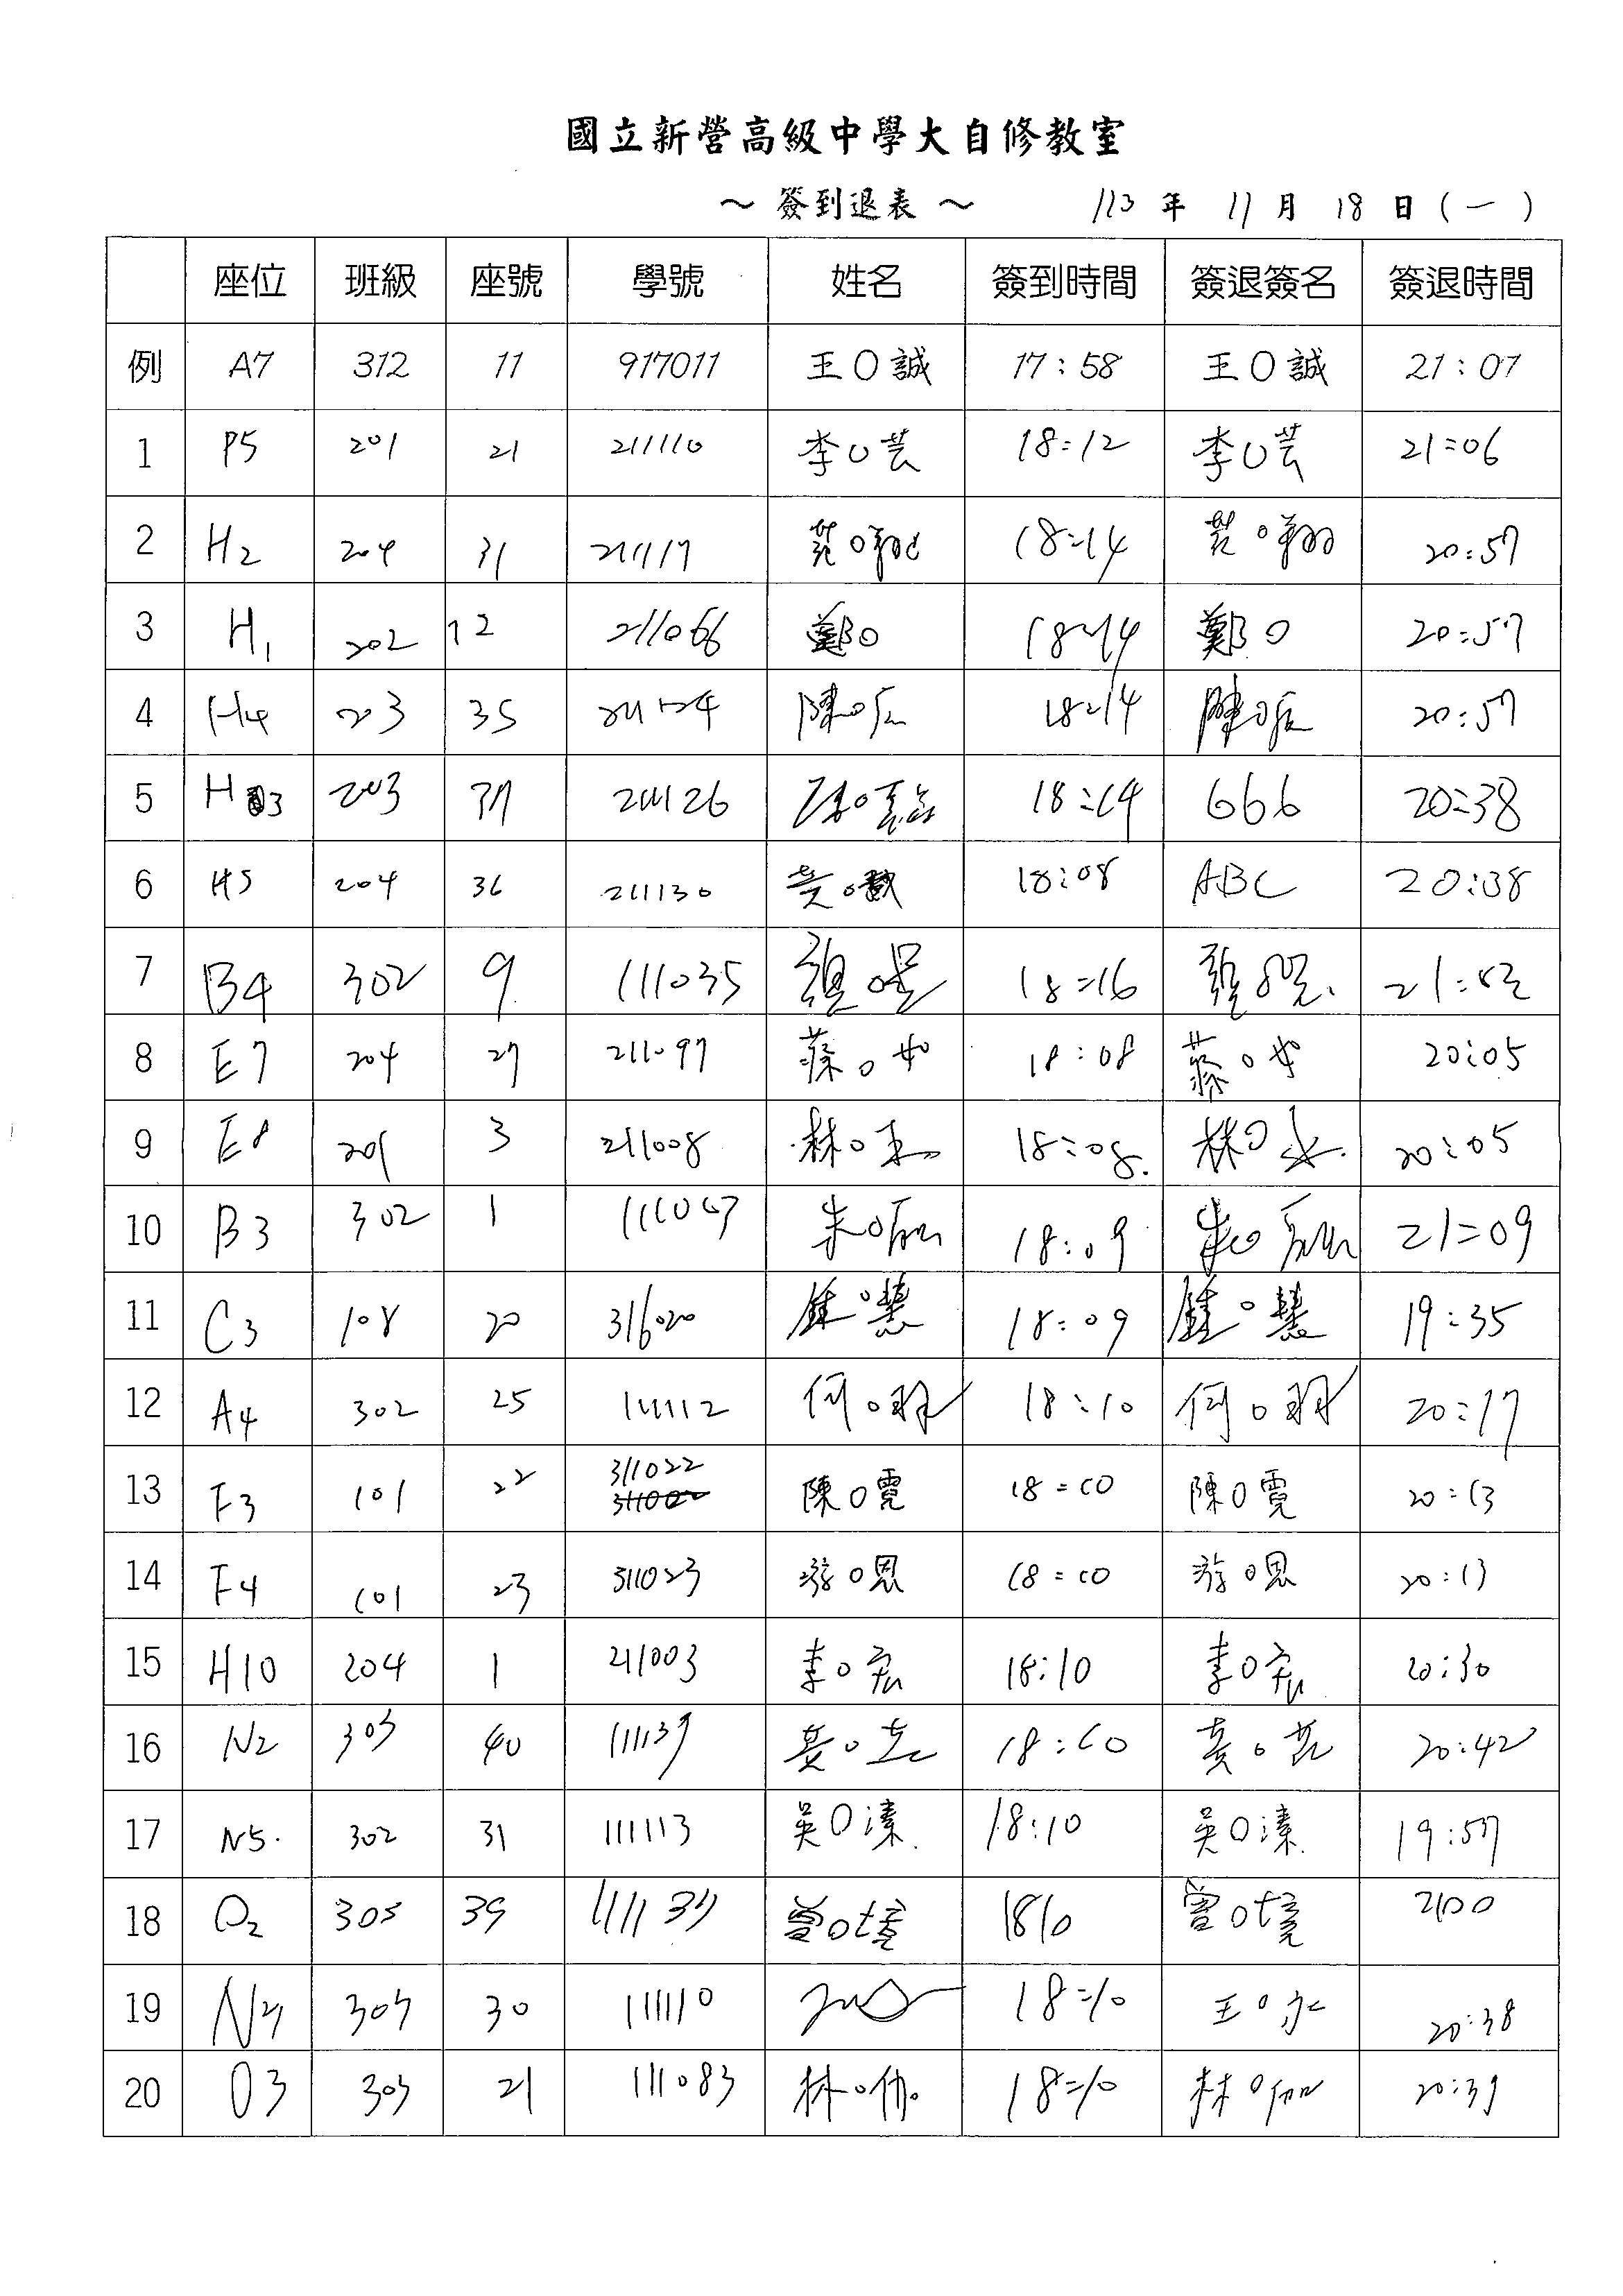 國立新營高級中學大自修教室
～ 簽到退表 ～ 113 年 11 月 18 日 (一)
座位 班級 座號 學號 姓名 簽到時間 簽退簽名 簽退時間
例 A7 312 11 917011 王O誠 17:58 王O誠 21:07
1 P5 201 21 211110 李O芸 18:12 李O芸 21:06
2 H2 204 31 211117 18:14 20:57
3 H1 202 12 211066 鄭O 18:14 鄭O 20:57
4 H4 203 35 211124 陳O辰 18:14 陳O辰 20:57
5 H3 203 37 211126 18:14 666 20:38
6 H5 204 36 211130 黃O 18:08 ABC 20:38
7 B4 302 9 111035 18:16 21:02
8 E7 204 27 211097 蔡O 18:08 蔡O 20:05
9 E8 201 3 211008 林O 18:08 林O 20:05
10 B3 302 1 111007 朱O 18:09 朱O 21:09
11 C3 108 20 316020 鍾O慧 18:09 鍾O慧 19:35
12 A4 302 25 111112 何O 18:10 何O 20:17
13 F3 101 22 311022 陳O霓 18:10 陳O霓 20:13
14 F4 101 23 311023 游O恩 18:10 游O恩 20:13
15 H10 204 1 211003 李O宏 18:10 李O宏 20:30
16 N2 303 40 111139 黃O 18:10 黃O 20:42
17 N5 302 31 111113 吳O溱 18:10 吳O溱 19:57
18 O2 303 39 111137 曾O境 1810 曾O境 2100
19 303 30 111110 18:10 王O永 20:38
20 O3 303 21 111083 林O伽 18:10 林O伽 20:39